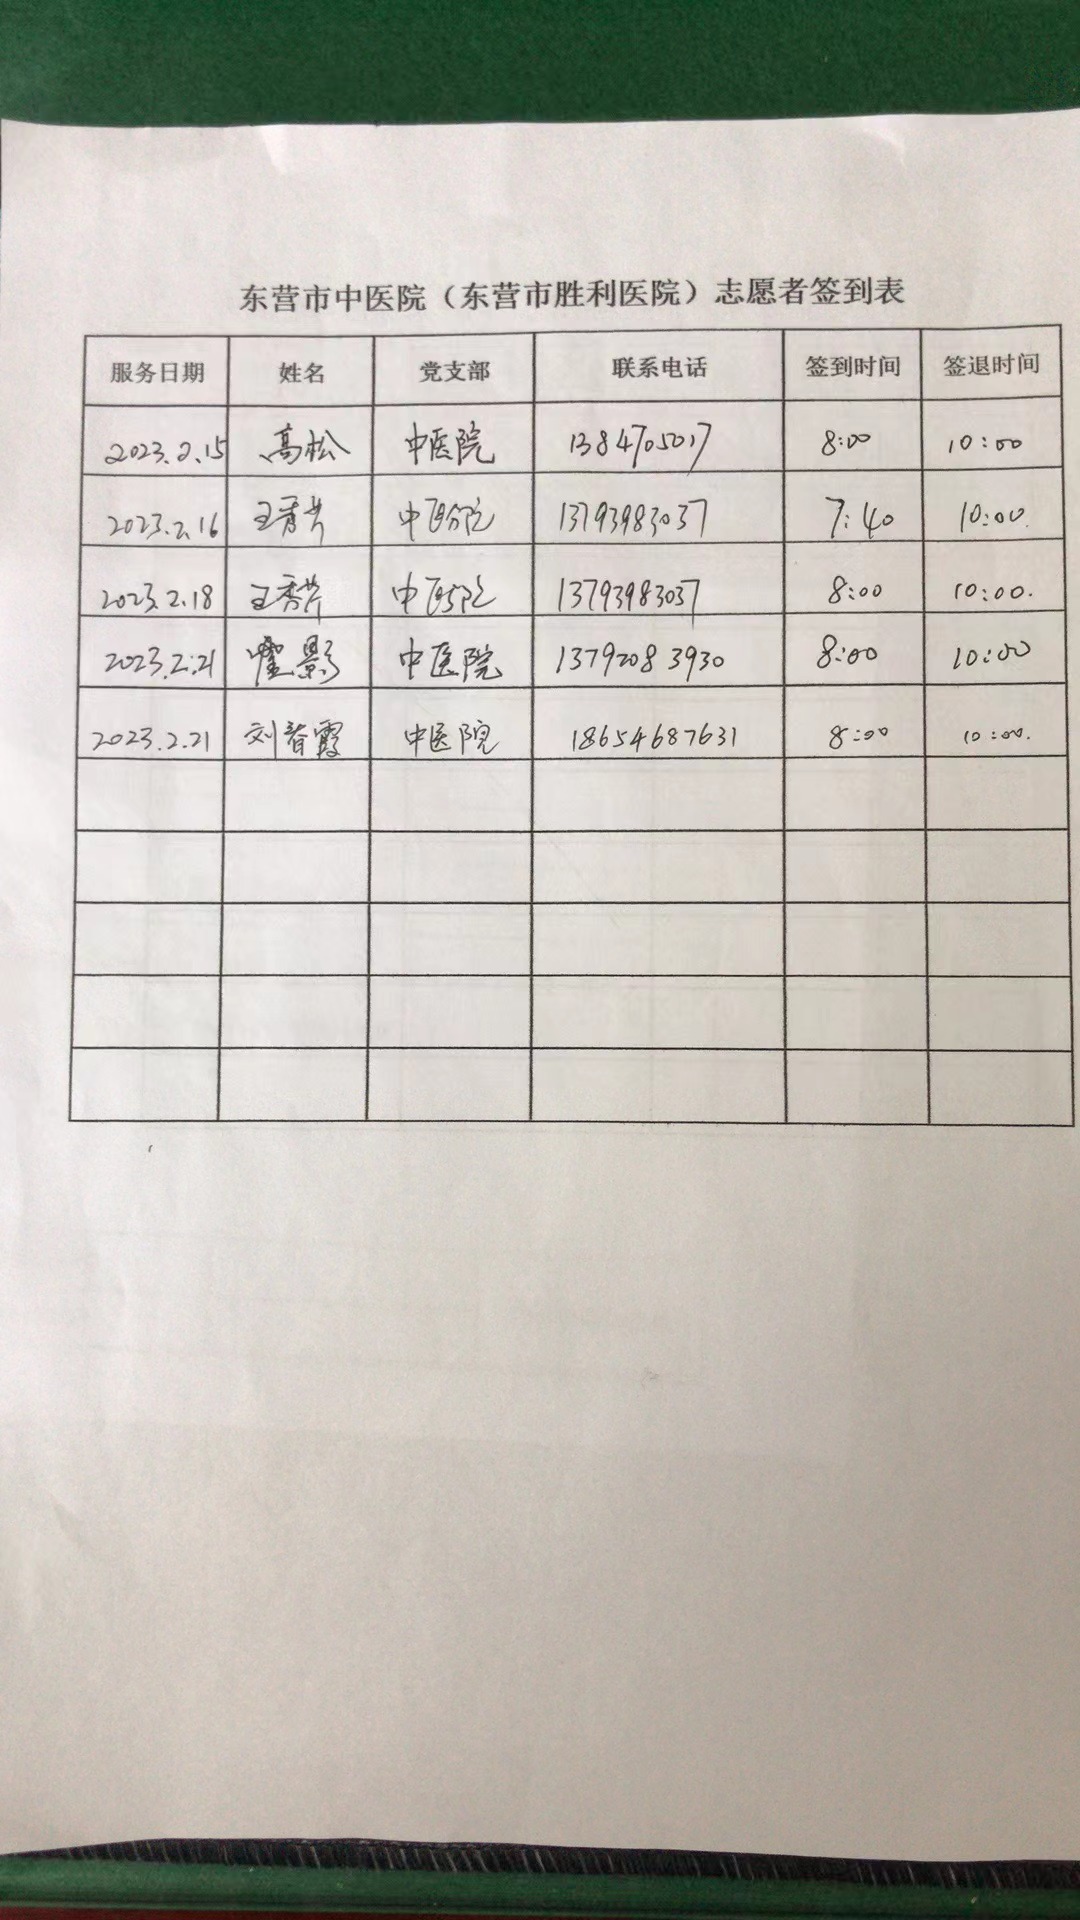 东营市中医院（东营市胜利医院）志愿者签到表
服务日期 姓名 党支部 联系电话 签到时间 签退时间
2023.2.15 高松 中医院 1384705017 8:00 10:00
2023.2.16 王香芹 中医院 13793983037 7:40 10:00.
2023.2.18 王香芹 中医院 13793983037 8:00 10:00.
2023.2.21 霍影 中医院 13792083930 8:00 10:00
2023.2.21 刘春霞 中医院 18654687631 8:00 10:00.